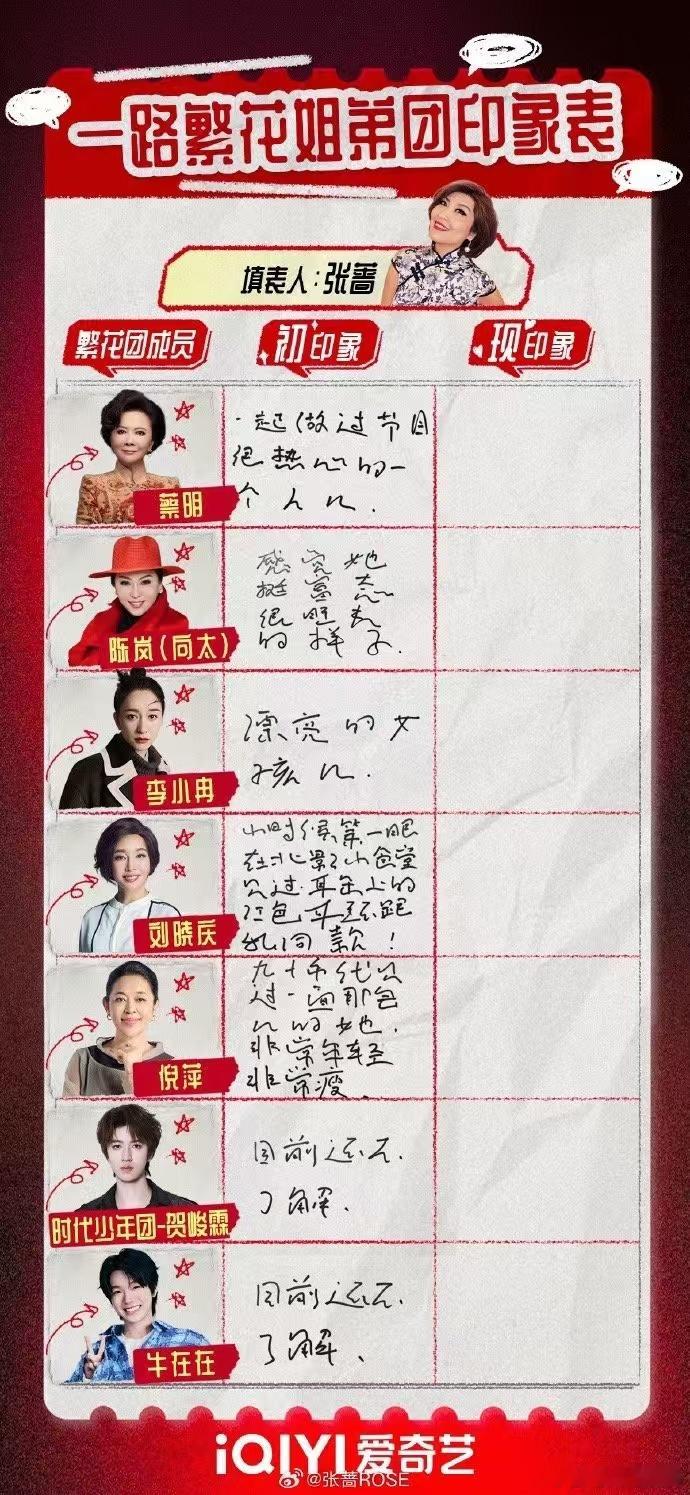 一路繁花姐弟团印象表
填表人:张蔷
繁花团成员
初印象
现印象
蔡明
一起做过节目
很热心的一
个人儿.
陈岚(向太)
感觉她
挺富态
很旺夫
的样子.
李小冉
漂亮的女
孩儿.
刘晓庆
小时候第一眼
在北影厂小食堂
见过.耳朵上的
红色耳环跟
我同款!
倪萍
九十年代见
过一面那会
儿的她.
非常年轻
非常瘦.
时代少年团-贺峻霖
目前还不.
了解.
牛在在
目前还不.
了解、
iQIYI爱奇艺
@张蔷ROSE